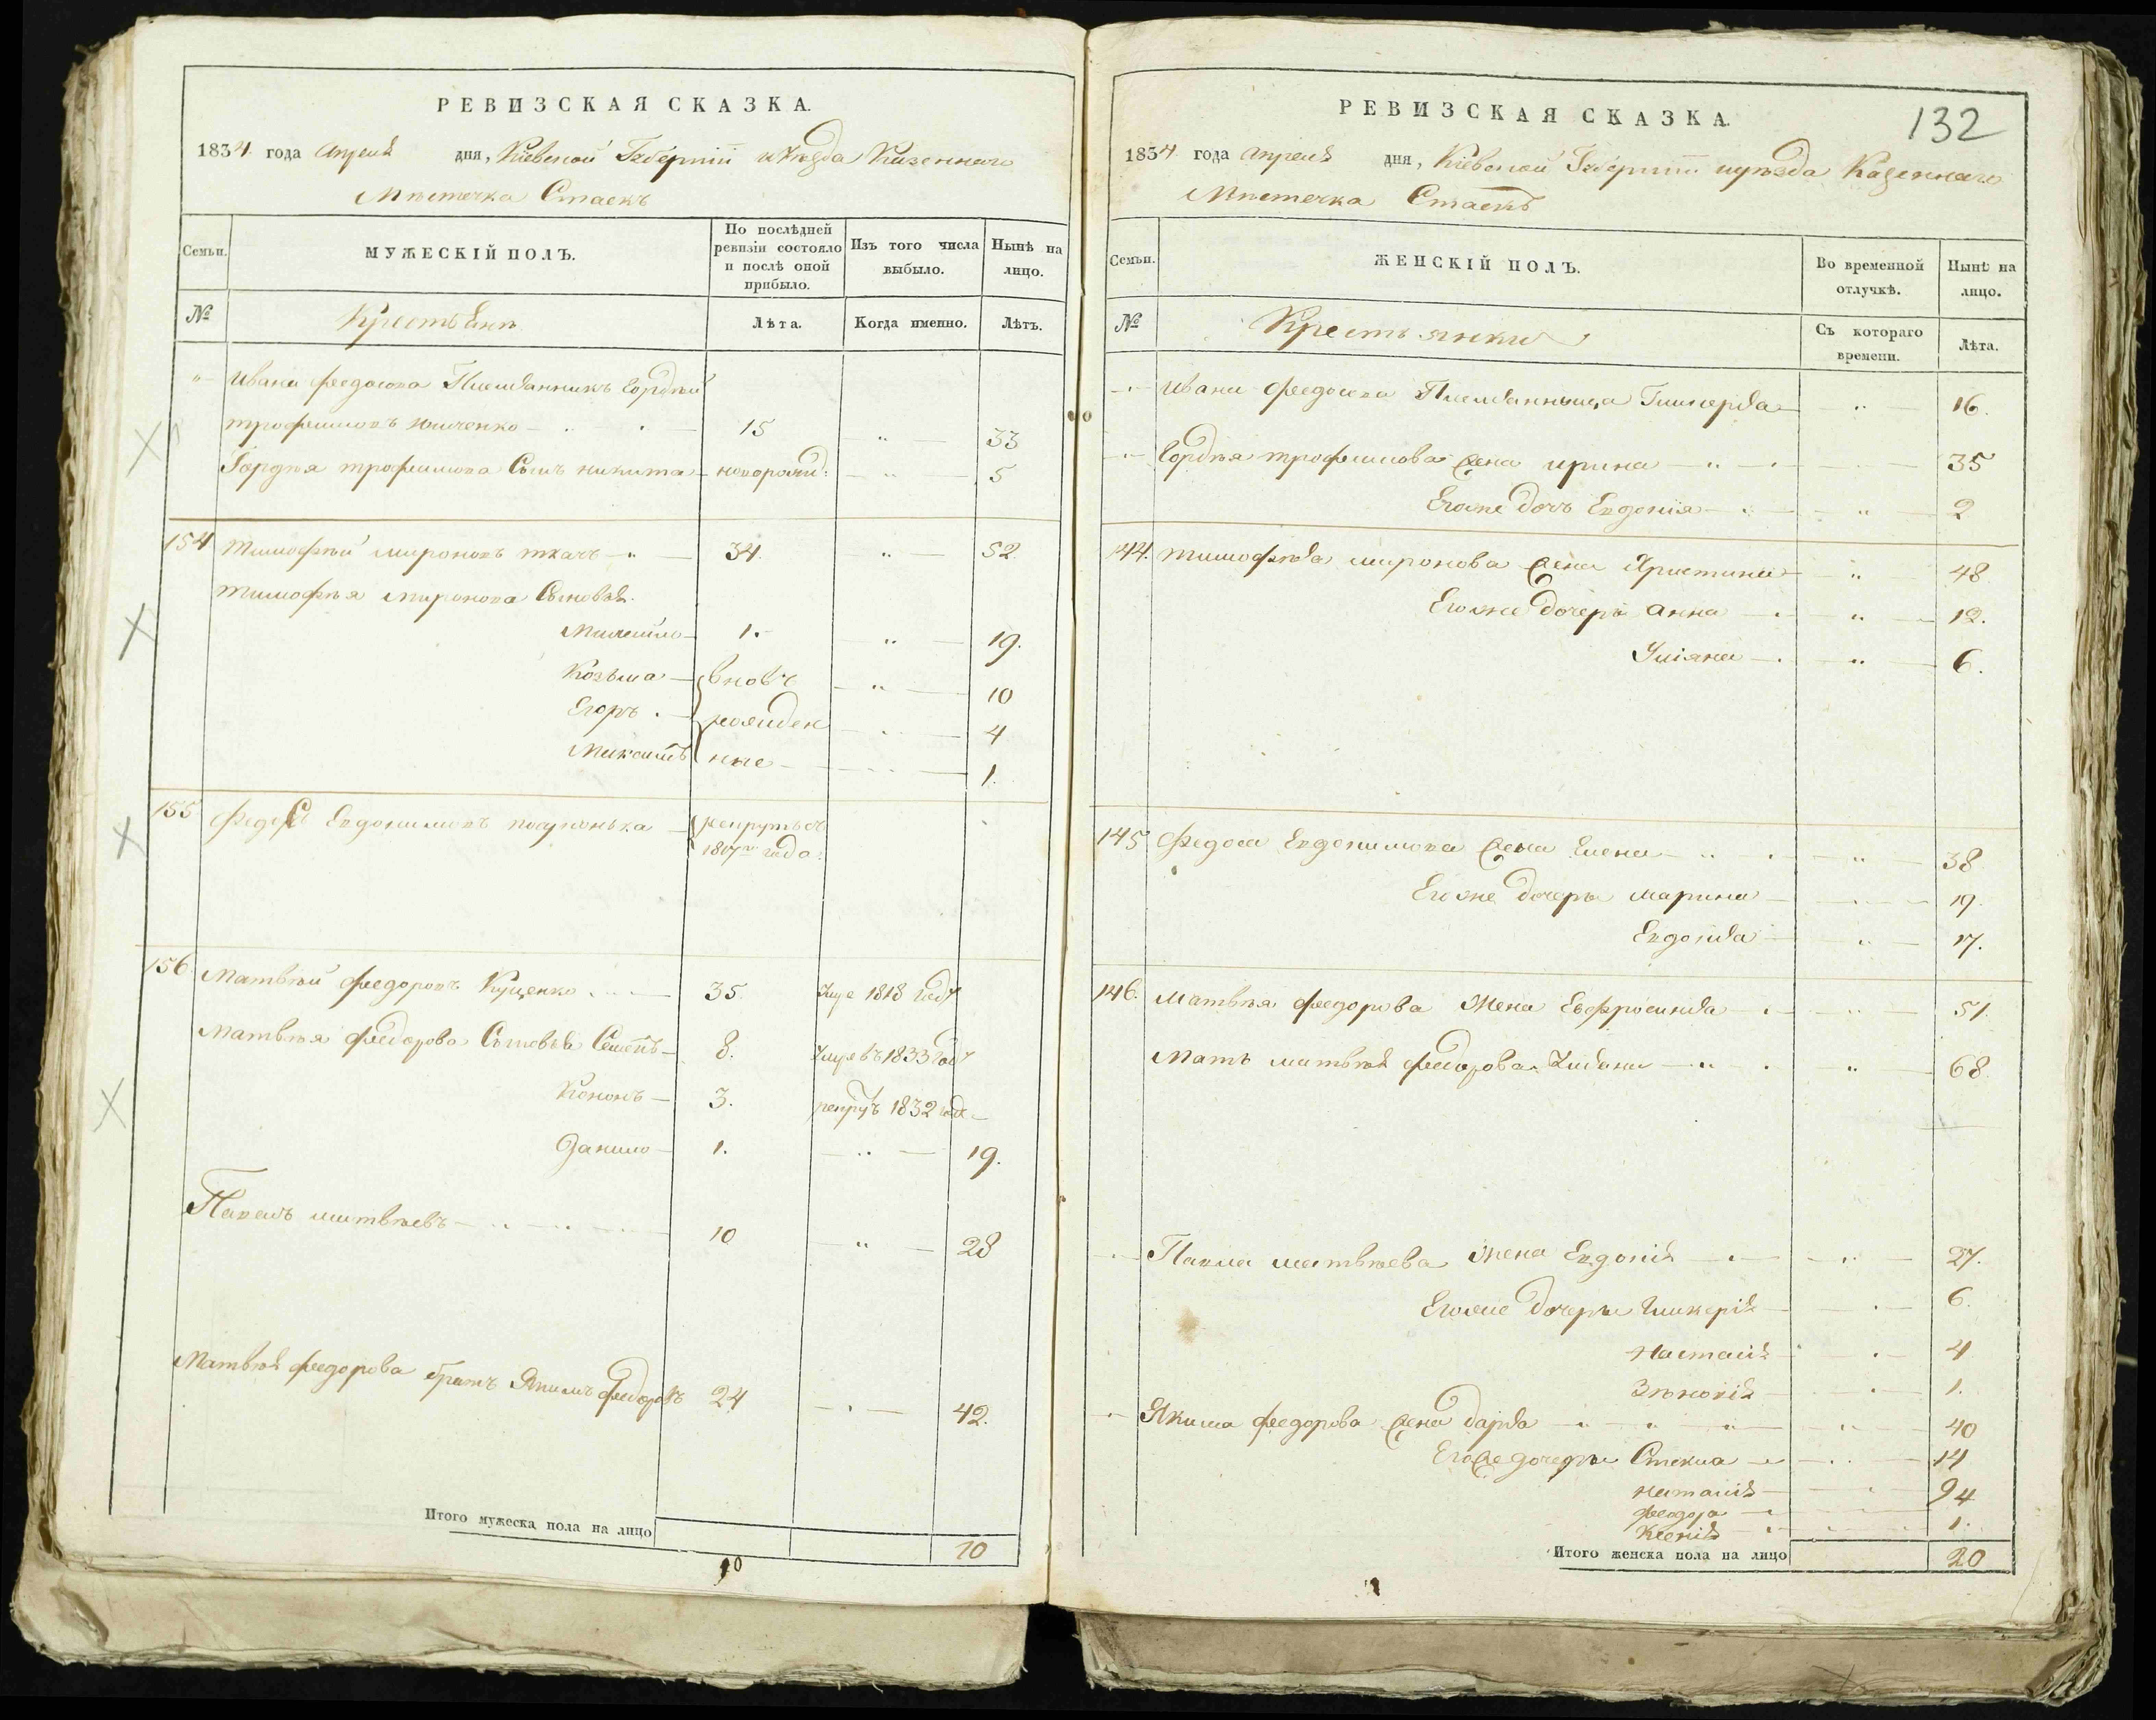 РЕВИЗСКАЯ СКАЗКА.
1834 года Апреля дня, Кіевской Губерніи и уѣзда Казеннаго
Мѣстечка Стаекъ
Семьи.
МУЖЕСКІЙ ПОЛЪ.
По послѣдней ревизіи состояло и послѣ оной прибыло.
Изъ того числа выбыло.
Нынѣ на лицо.
№
Крестьяне
Лѣта.
Когда именно.
Лѣтъ.
Ивана Федосова Племянникъ Гордѣй
трофимовъ 15 33
Гордѣя трофимова Сынъ никита новорожд: 5
154 Тимофѣй мироновъ ткачъ 34. 52.
Тимофѣя миронова Сыновья.
Михайло 1. 19.
Козьма вновь 10
Егоръ рожден 4
Максимъ ные 1.
155 Федосъ Евдокимовъ рекрутъ съ
года
156. Матвѣй Федоровъ Куценко 35. Умре 1818 году
Матвѣя Федорова Сыновья Семенъ 8. Умре въ 1833 году
Кононъ 3. рекрутъ 1832 года
Данило 1. 19.
Павелъ матвѣевъ 10 28
Матвѣя Федорова братъ Якимъ Федоровъ 24 42.
Итого мужеска пола на лицо 10
10
132
РЕВИЗСКАЯ СКАЗКА.
1834 года Апреля дня, Кіевской Губерніи и уѣзда Казеннаго
Мѣстечка Стаекъ
Семьи.
ЖЕНСКІЙ ПОЛЪ.
Во временной отлучкѣ.
Нынѣ на лицо.
№
Крестьянки
Съ котораго времени.
Лѣта.
Ивана Федосова Племянныца Гликерья 16.
Гордѣя трофимова жена ирина 35
Егоже дочь Евдокія 2
144. Тимофѣя миронова жена Христина 48
Егоже дочери анна 12.
Уліяна 6.
145 Федоса Евдокимова жена Елена 38
Егоже дочери марина 19.
Евдокія 17.
146. Матвѣя Федорова Жена Евфросинія 51.
Мать матвѣя Федорова 68.
Павла матвѣева жена Евдокія 27.
Егоже дочери Гликерія 6.
Настасія 4
Зѣновія 1.
Якима Федорова жена дарья 40
Егоже дочери Стекла 14
наталія 9
федора 4
Ксенія 1.
Итого женска пола на лицо 20